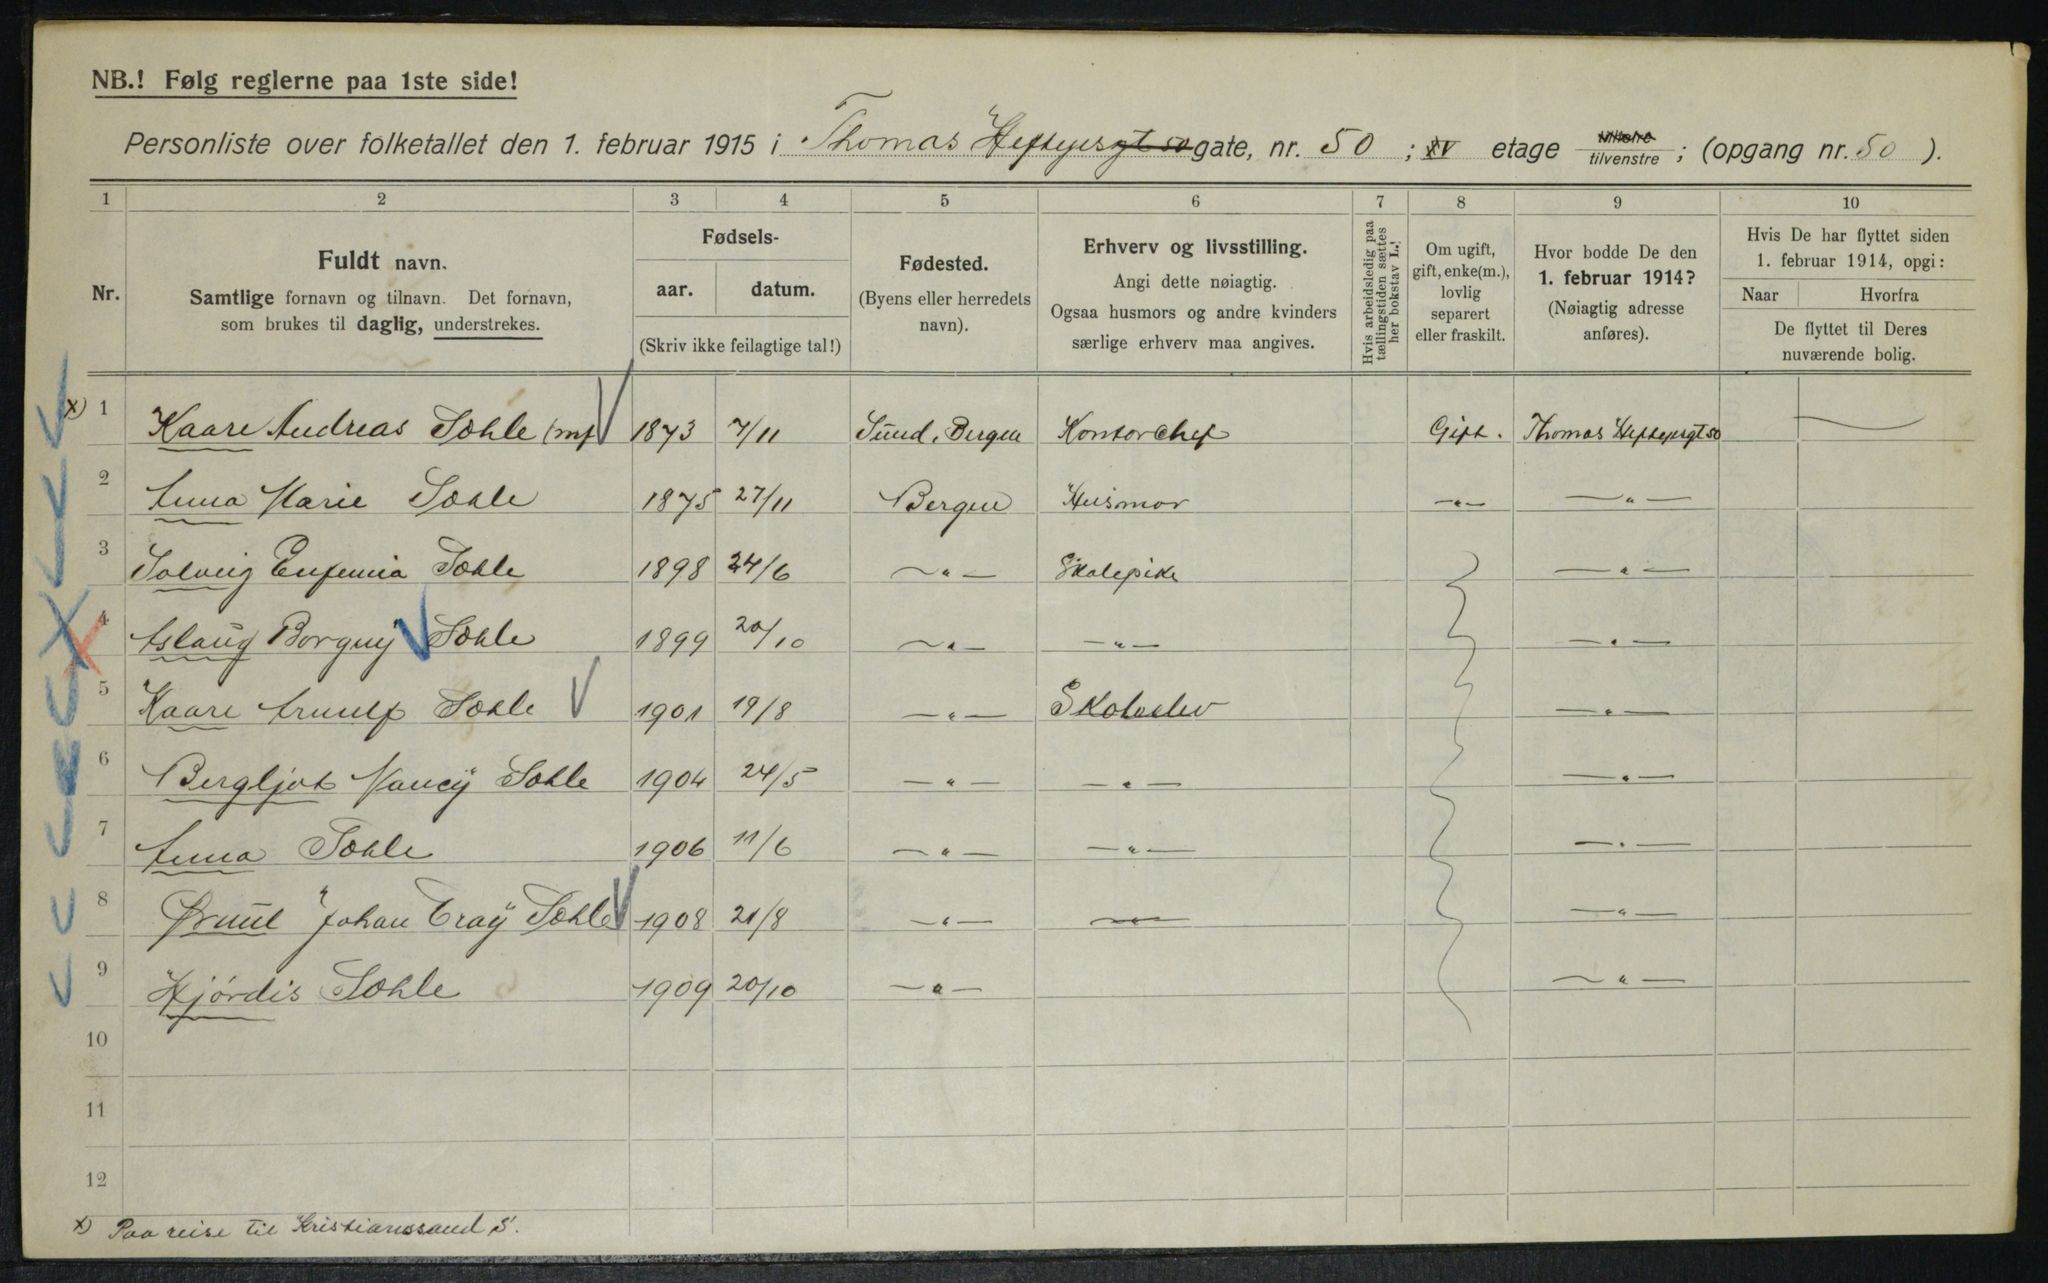 NB.! Følg reglerne paa 1ste side!
Personliste over folketallet den 1. februar 1915 i Thomas Heftyesgt 50 gate, nr. 50 ; IV etage tilhøire tilvenstre ; (opgang nr. 50 ).
1 2 3 4 5 6 7 8 9 10
Nr.
Fuldt navn.
Samtlige fornavn og tilnavn. Det fornavn,
som brukes til daglig, understrekes.
Fødsels-
aar. datum.
(Skriv ikke feilagtige tal!)
Fødested.
(Byens eller herredets
navn).
Erhverv og livsstilling.
Angi dette nøiagtig.
Ogsaa husmors og andre kvinders
særlige erhverv maa angives.
Hvis arbeidsledig paa
tællingstiden sættes
her bokstav L.!
Om ugift,
gift, enke(m.),
lovlig
separert
eller fraskilt.
Hvor bodde De den
1. februar 1914?
(Nøiagtig adresse
anføres).
Hvis De har flyttet siden
1. februar 1914, opgi:
Naar Hvorfra
De flyttet til Deres
nuværende bolig.
x) 1 Kaare Andreas Sæhle (mf 1873 7/11 Sund, Bergen Kontorchef Gift. Thomas Heftyesgt 50
2 Anna Marie Sæhle 1875 27/11 Bergen Husmor —"— —"—
3 Solveig Eufemia Sæhle 1898 24/6 —"— Skolepike —"—
4 Aslaug Borguy Sæhle 1899 20/10 —"— —"— —"—
5 Kaare Arnulf Sæhle 1901 19/8 —"— Skoleelev —"—
6 Bergljot Nancy Sæhle 1904 24/5 —"— —"— —"—
7 Anna Sæhle 1906 11/6 —"— —"— —"—
8 Ørnul Johan Sæhle 1908 21/8 —"— —"— —"—
9 Hjørdis Sæhle 1909 20/10 —"— —"—
10
11
12
x) Paa reise til Kristianssand S.